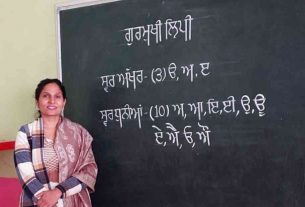 ਗੁਰਮੁਖੀ ਲਿਪੀ
ਸ੍ਵਰ ਅੱਖਰ - (3) ੳ, ਅ, ੲ
ਸ੍ਵਰ ਧੁਨੀਆਂ - (10) ਅ, ਆ, ਇ, ਈ, ਉ, ਊ
ਏ, ਐ, ਓ, ਔ